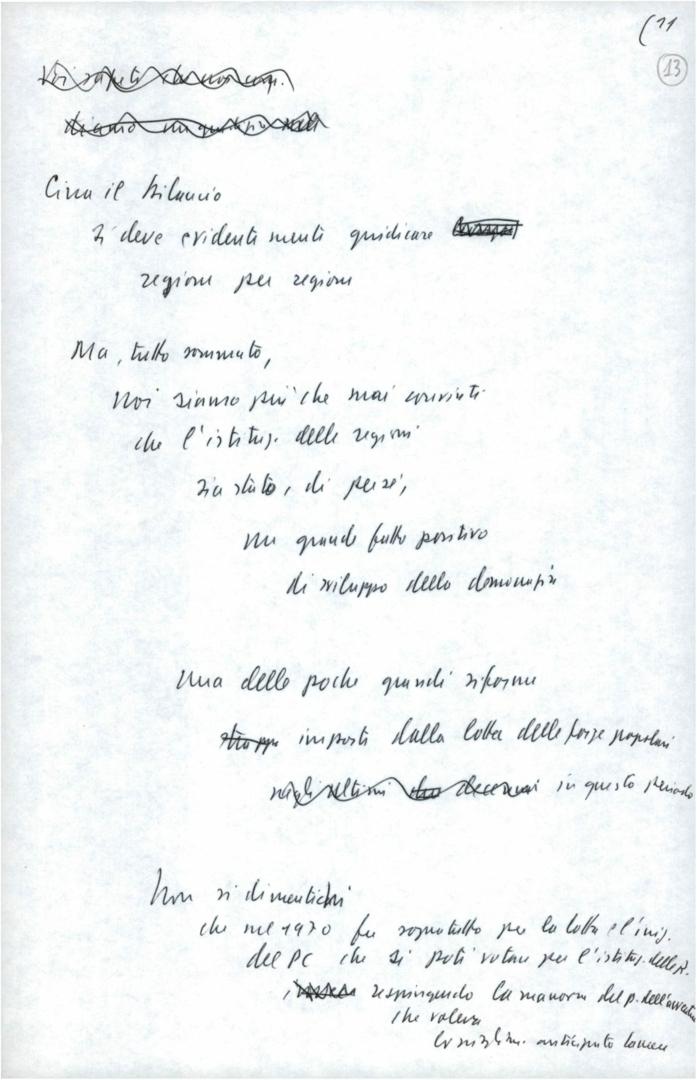 (11
13
Voi sapete che non
diamo un giudizio
Circa il bilancio
si deve evidentemente giudicare
regione per regione
Ma, tutto sommato,
noi siamo più che mai convinti
che l'istituz. delle regioni
sia stato, di per sé,
un grande fatto positivo
di sviluppo della democrazia
Una delle poche grandi riforme
strappate imposte dalla lotta delle forze popolari
negli ultimi due decenni in questo periodo
Non si dimentichi
che nel 1970 fu soprattutto per la lotta e l'iniz.
del PC che si poté votare per l'istituz. delle R.
respingendo la manovra del p. dell'avventura
che voleva
lo scioglim. anticipato